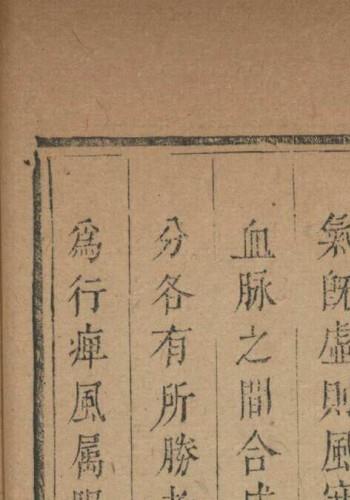 氣旣虛則風寒
血脉之間合成
分各有所勝者
為行痺風属陽